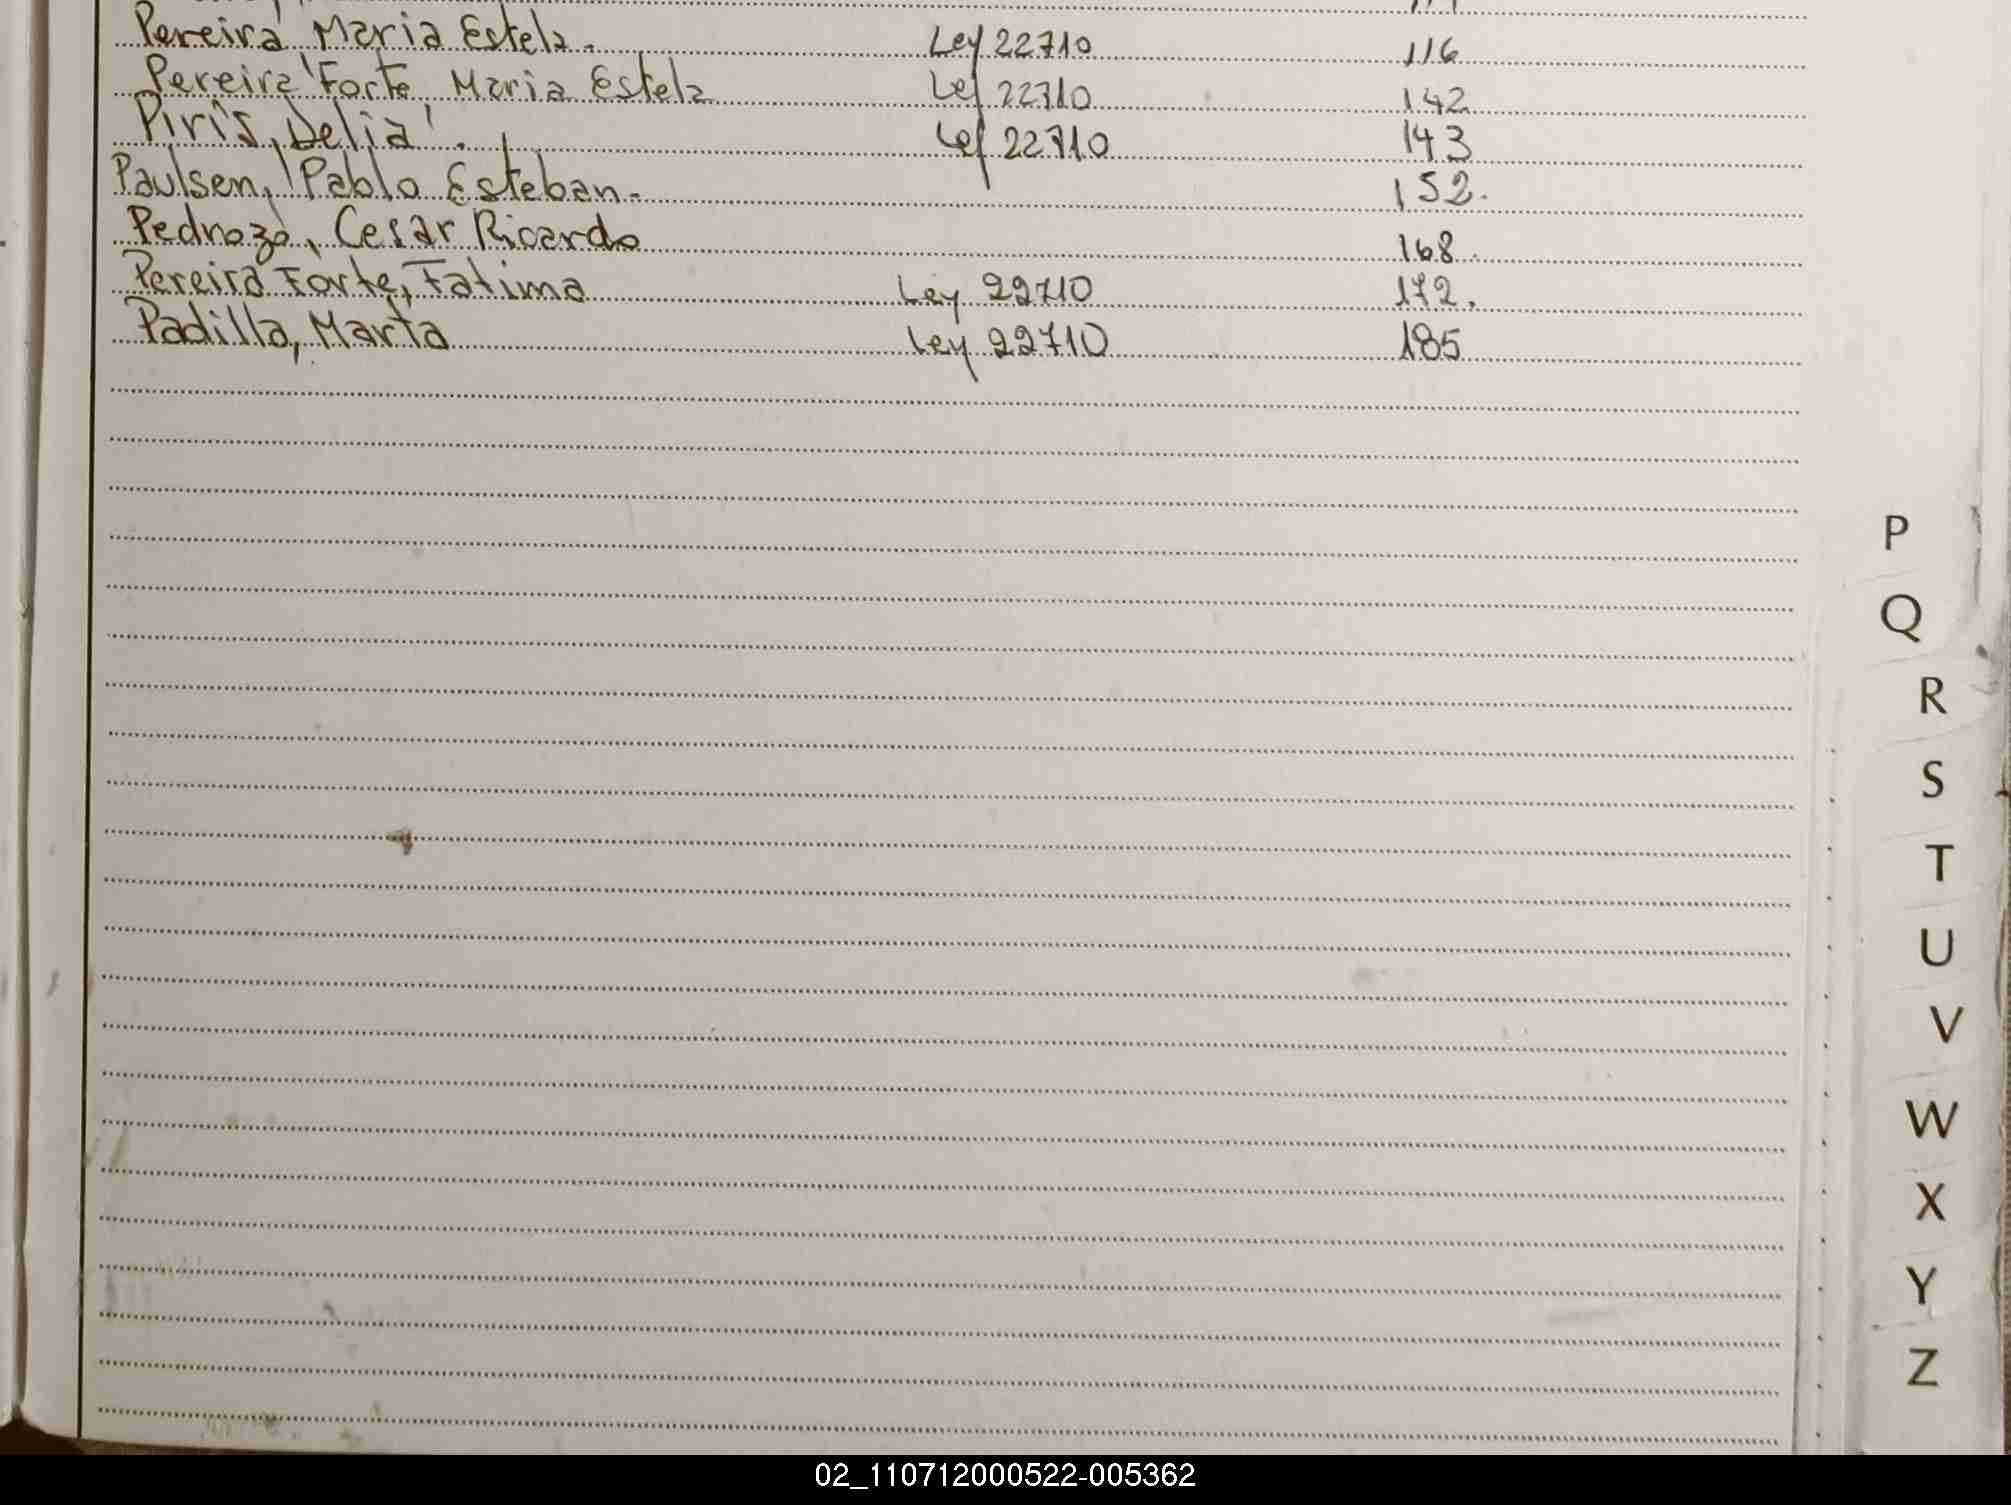 Pereira Maria Estela. Ley 22710 116
Pereira Forte Maria Estela Ley 22710 142
Piris, Delia. Ley 22710 143
Paulsen, Pablo Esteban. 152.
Pedrozo, Cesar Ricardo 168.
Pereira Forte, Fatima Ley 22710 172.
Padilla, Marta Ley 22710 185
P
Q
R
S
T
U
V
W
X
Y
Z
02_110712000522-005362